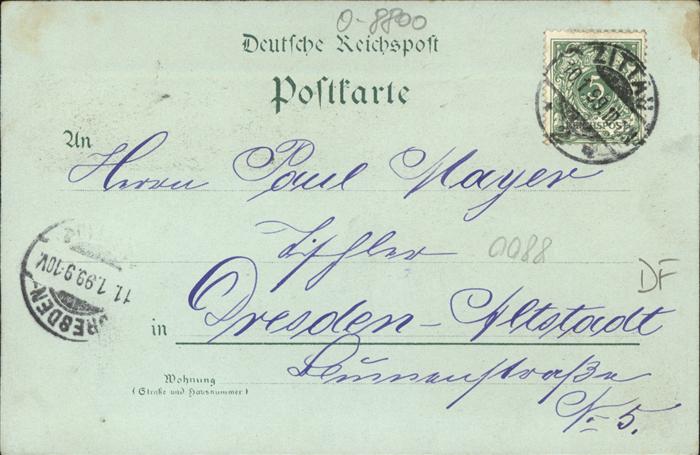 0-8800
Deutsche Reichspost
Postkarte
ZITTAU
An
Herrn Paul Mayer
Tischler
0088
DF
DRESDEN-
11.1.99.9-10V.
in Dresden-Altstadt
Wohnung
(Straße und Hausnummer)
Blumenstraße
No 5.